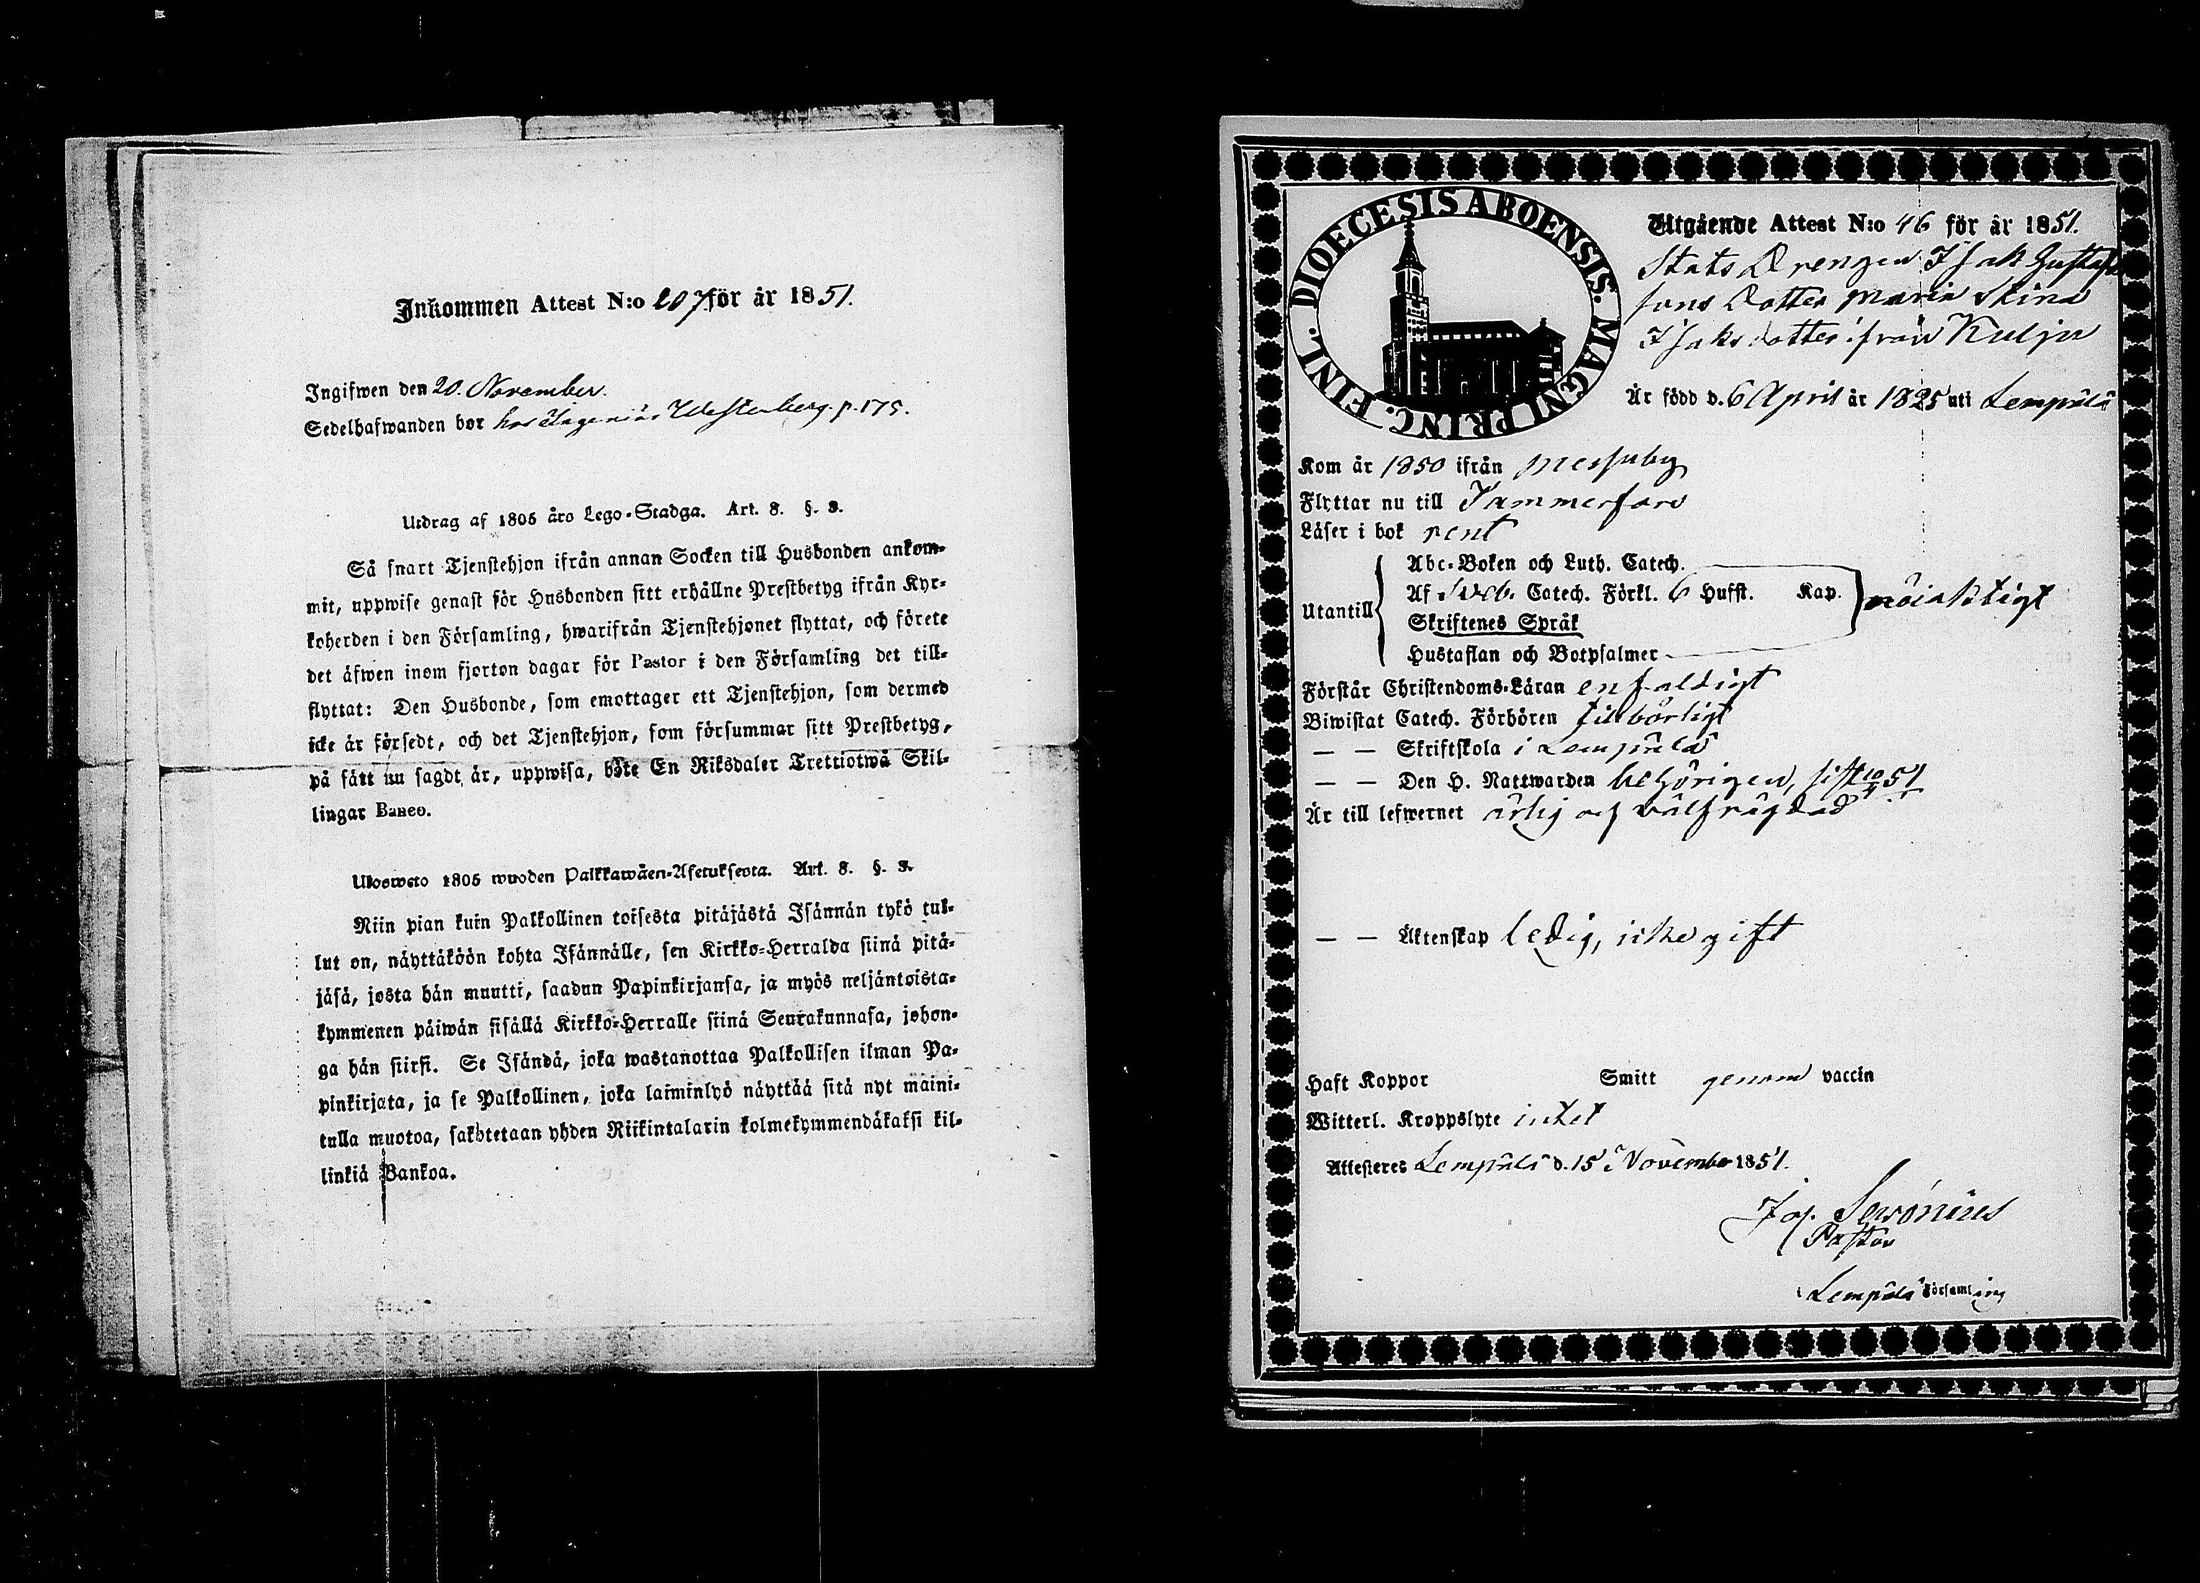 Inkommen Attest N:o 207 för år 1851.
Ingifwen den 20. November.
Sedelhafwanden bor hos Ingeniör Westerberg p. 175.
Utdrag af 1805 års Lego-Stadga. Art. 8. §. 3.
Så snart Tjenstehjon ifrån annan Socken till Husbonden ankom-
mit, uppwise genast för Husbonden sitt erhållne Prestbetyg ifrån Kyr-
koherden i den Församling, hwarifrån Tjenstehjonet flyttat, och förete
det äfwen inom fjorton dagar för Pastor i den Församling det till-
flyttat: Den Husbonde, som emottager ett Tjenstehjon, som dermed
icke är försedt, och det Tjenstehjon, som försummar sitt Prestbetyg,
på sätt nu sagdt är, uppwisa, böte En Riksdaler Trettiotwå Skil-
lingar Banco.
Ulosweto 1805 wuoden Palkkawäen-Asetuksesta. Art. 8. §. 3.
Niin pian kuin Palkollinen toisesta pitäjästä Isännän tykö tul-
lut on, näyttäköön kohta Isännälle, sen Kirkko-Herralda siinä pitä-
jäsä, josta hän muutti, saadun Papinkirjansa, ja myös neljäntoista-
kymmenen päiwän sisällä Kirkko-Herralle siinä Seurakunnasa, johon-
ga hän siirsi. Se Isändä, joka wastanottaa Palkollisen ilman Pa-
pinkirjata, ja se Palkollinen, joka laiminlyö näyttää sitä nyt maini-
tulla muotoa, sakotetaan yhden Riikintalarin kolmekymmendäkaksi kil-
linkiä Bankoa.
DIOECESIS ABOENSIS. MAGNI PRINC. FINL.
Utgående Attest N:o 46 för år 1851.
Stats Drengen Isak Gustafs
sons Dotter Maria Stina
Isaksdotter ifrån Kulju
Är född d. 6 April år 1825 uti Lempälä
Kom år 1850 ifrån Messuby
Flyttar nu till Tammerfors
Läser i bok rent
Abc-Boken och Luth. Catech.
Utantill Af Sveb. Catech. Förkl. 6 Hufst. Kap. nöiaktigt
Skriftenes Språk
Hustaflan och Botpsalmer
Förstår Christendoms-Läran enfaldigt
Biwistat Catech. Förhören tillbörligt
— — Skriftskola i Lempälä
— — Den H. Nattwarden behörigen, sist 51
Är till lefwernet ärlig och välfrägdad
— — Äktenskap ledig, icke gift
Haft Koppor Smitt genom vaccin
Witterl. Kroppslyte intet
Attesteres Lempälä d. 15 November 1851.
Jos. Serönius
Pastor
Lempälä Församling